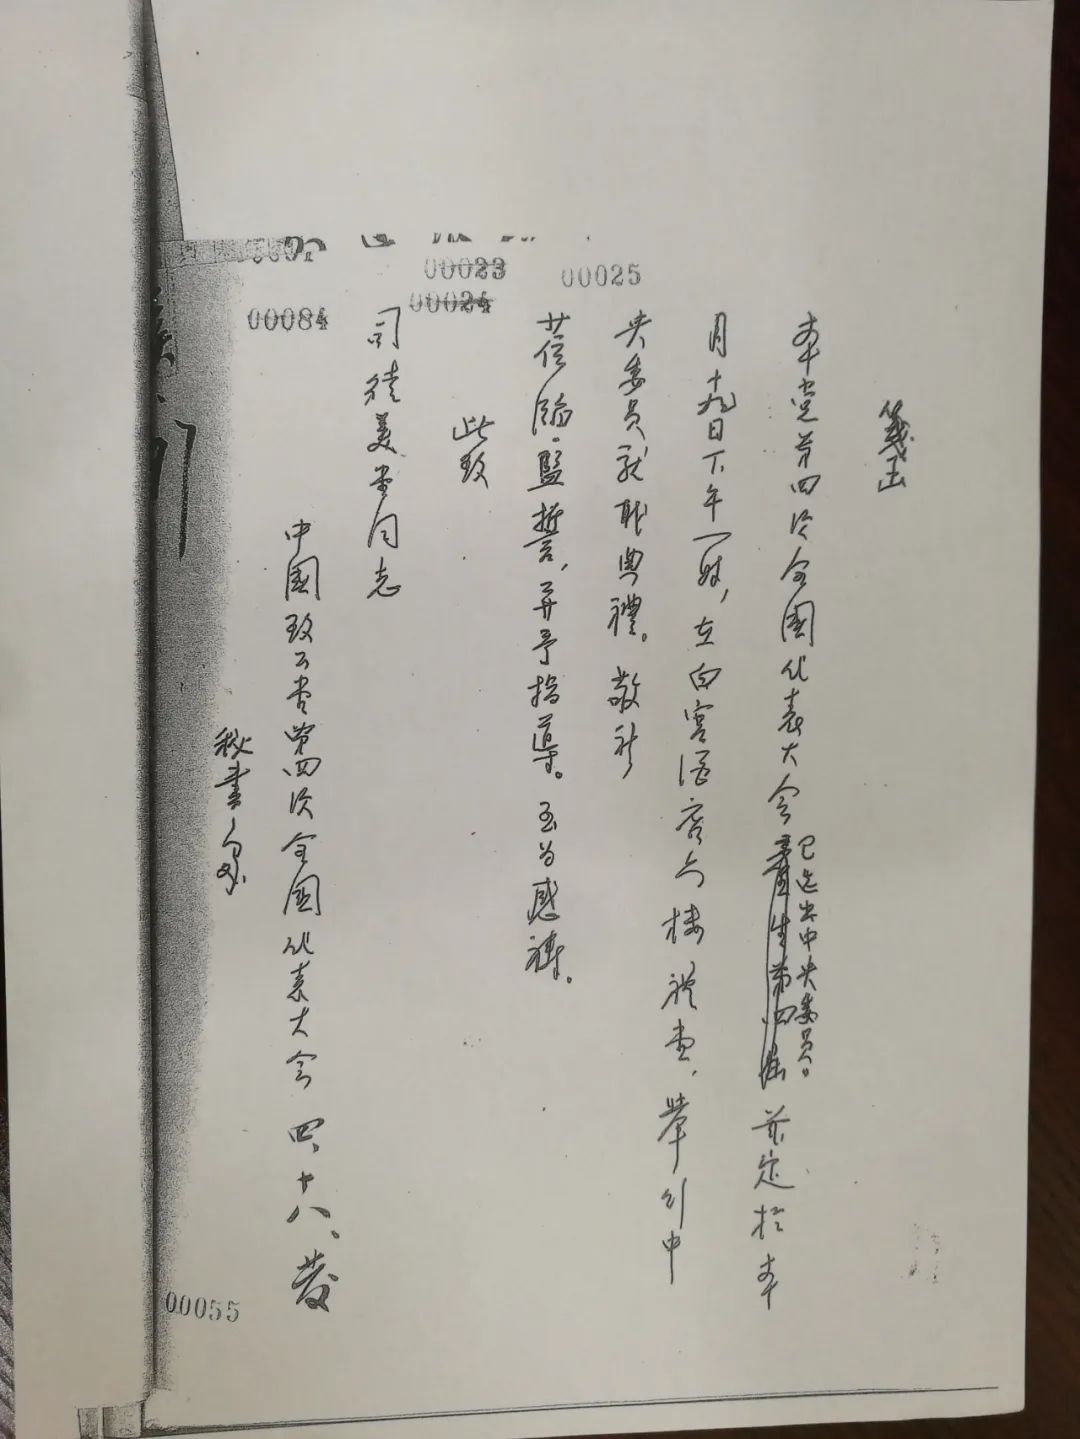 箋函
本党第四次全國代表大会產生第四屆茲定於本
已选出中央委員。
月十九日下午一时，在白宮酒店六楼禮堂，举行中
央委員就职典禮。敬祈
莅临監誓，并予指導。至为感禱。
此致
司徒美堂同志
中國致公堂第四次全國代表大会 四、十八、發
秘書处
00023
00024
00025
00084
00055